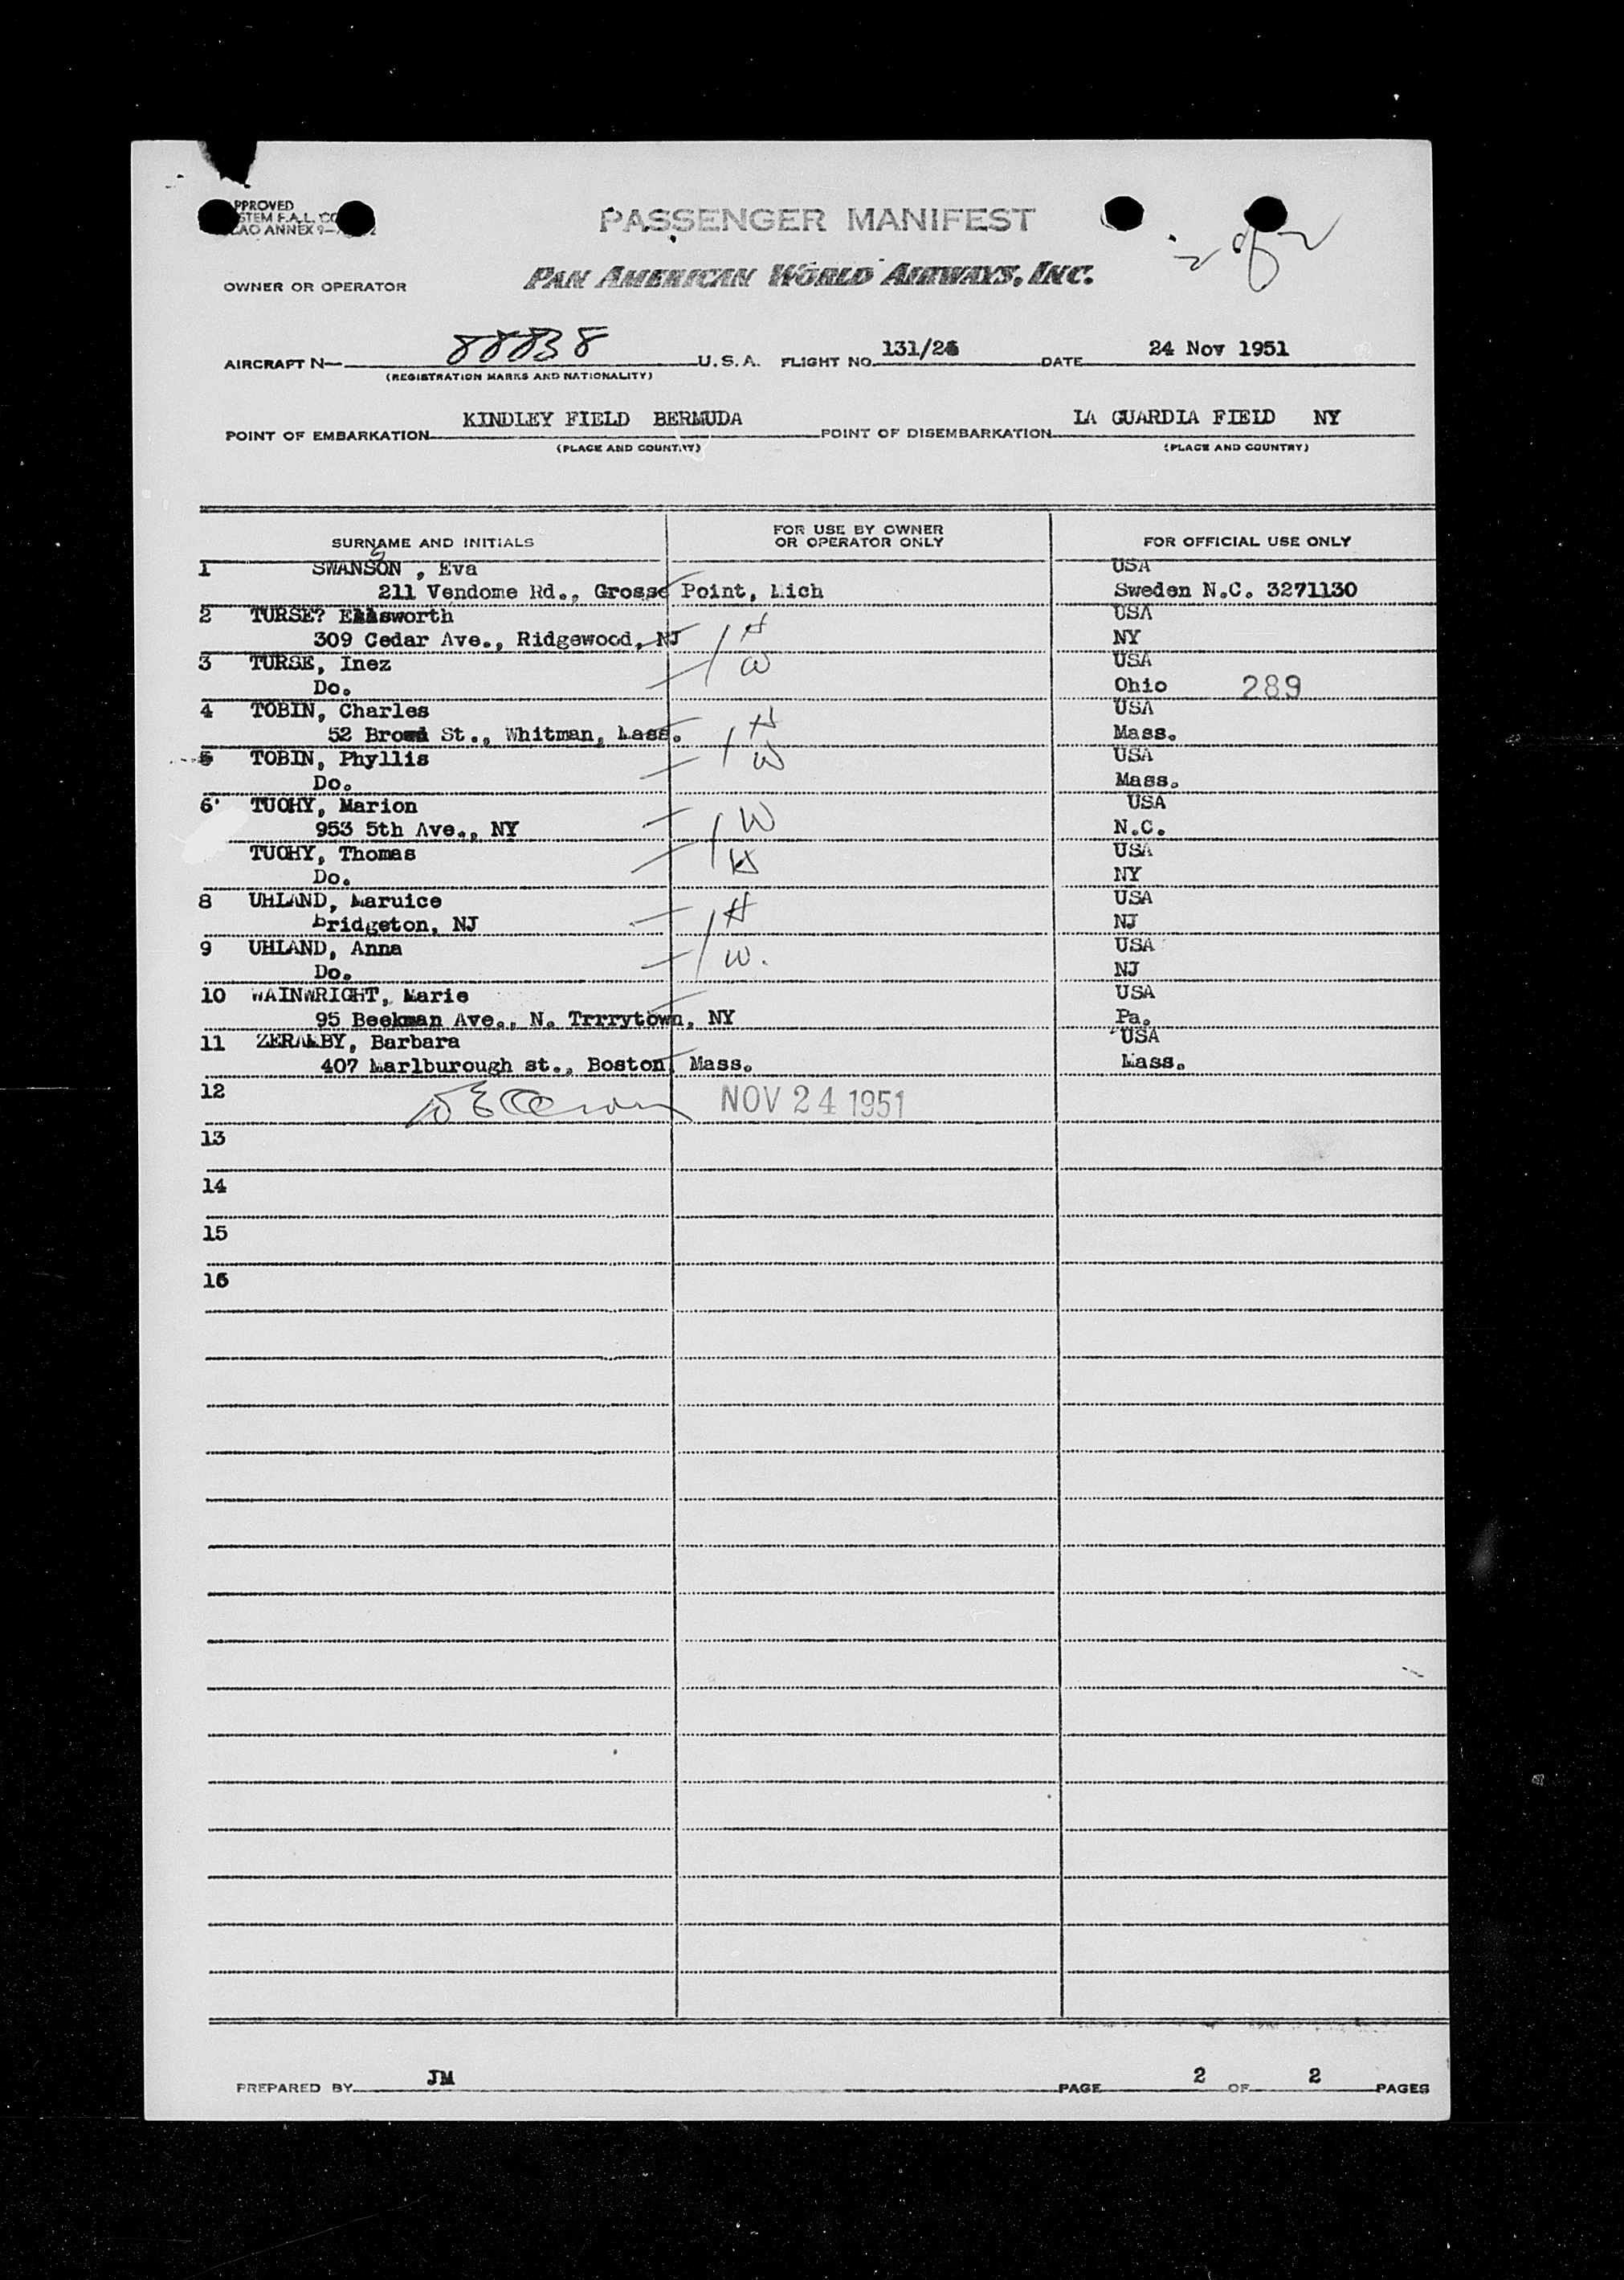 PPROVED
STEM F.A.L. CO
CAO ANNEX 9-
PASSENGER MANIFEST
2 of 2
OWNER OR OPERATOR PAN AMERICAN WORLD AIRWAYS, INC.
AIRCRAFT N— 88838 U.S.A. FLIGHT NO. 131/24 DATE 24 Nov 1951
(REGISTRATION MARKS AND NATIONALITY)
POINT OF EMBARKATION KINDLEY FIELD BERMUDA POINT OF DISEMBARKATION LA GUARDIA FIELD NY
(PLACE AND COUNTRY) (PLACE AND COUNTRY)
SURNAME AND INITIALS FOR USE BY OWNER OR OPERATOR ONLY FOR OFFICIAL USE ONLY
1 SWANSON , Eva USA
211 Vendome Rd., Grosse Point, Mich Sweden N.C. 3271130
2 TURSE? Ellsworth H USA
309 Cedar Ave., Ridgewood, NJ NY
3 TURSE, Inez W USA
Do. Ohio 289
4 TOBIN, Charles H USA
52 Broad St., Whitman, Mass. Mass.
5 TOBIN, Phyllis W USA
Do. Mass.
6 TUOHY, Marion W USA
953 5th Ave., NY N.C.
TUOHY, Thomas H USA
Do. NY
8 UHLAND, Maruice H USA
Bridgeton, NJ NJ
9 UHLAND, Anna W. USA
Do. NJ
10 WAINWRIGHT, Marie USA
95 Beekman Ave., N. Trrrytown, NY Pa.
11 Barbara USA
407 Marlburough st., Boston, Mass. Mass.
12 NOV 24 1951
13
14
15
16
PREPARED BY JM PAGE 2 OF 2 PAGES